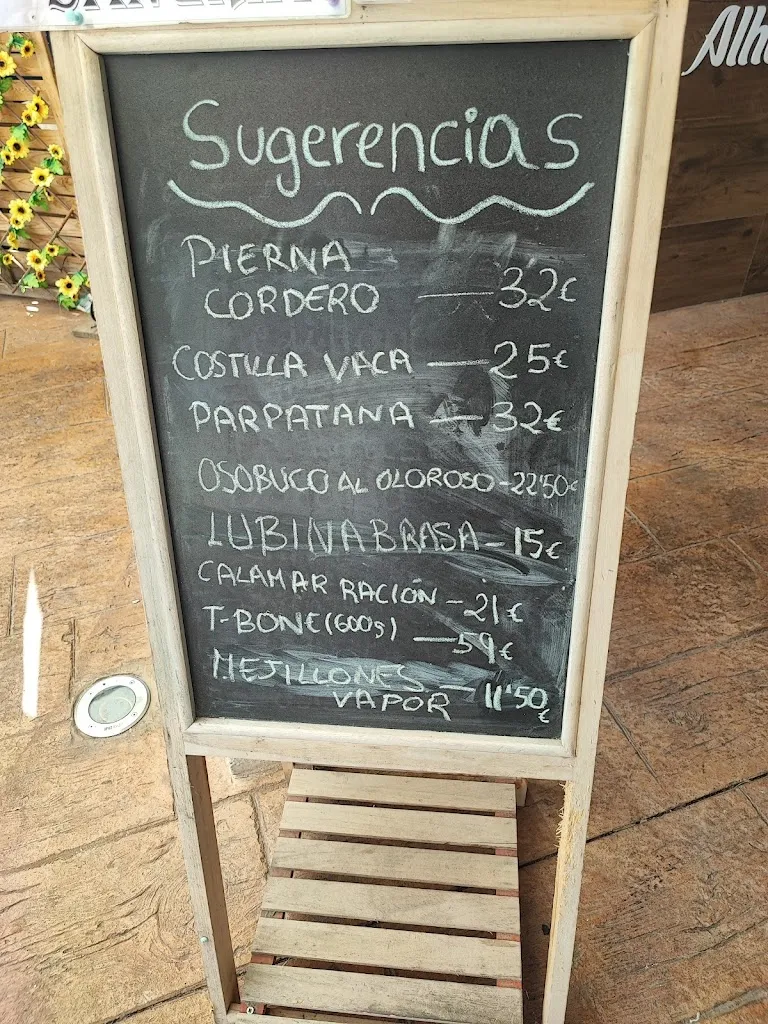 Alh
Sugerencias
PIERNA
CORDERO — 32€
COSTILLA VACA — 25€
PARPATANA — 32€
OSOBUCO AL OLOROSO - 22'50€
LUBINA BRASA - 15€
CALAMAR RACIÓN - 21€
T-BONE (600g) — 59€
MEJILLONES
VAPOR — 11'50€